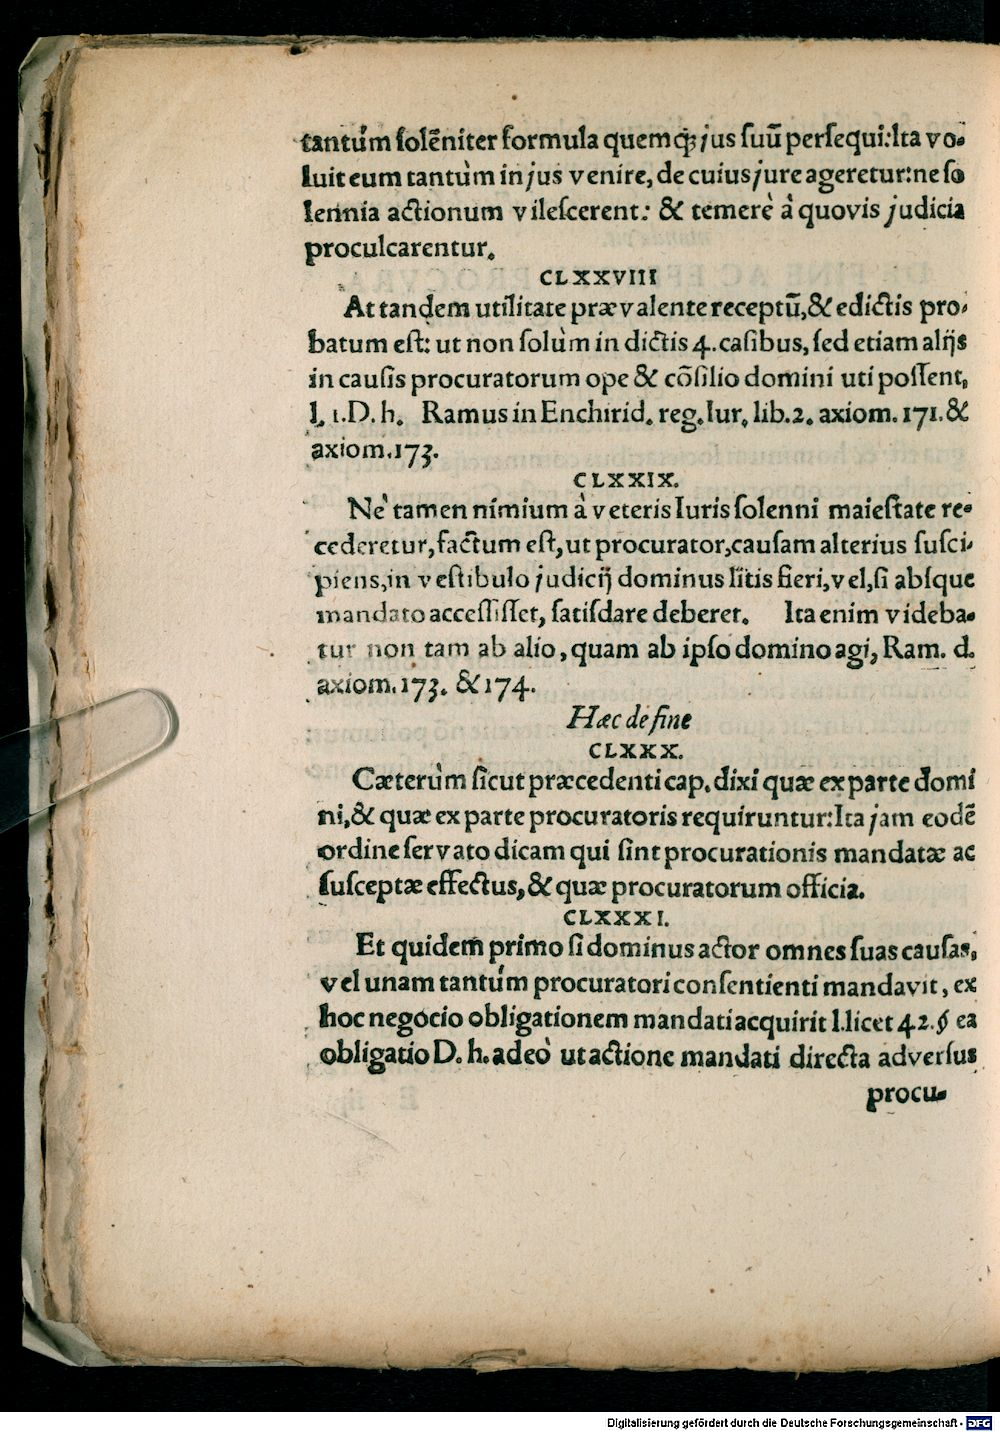 tantúm ſolẽniter formula quemq́ꝫ jus ſuũ perſequi: Ita vo-
luit eum tantùm in jus venire, de cuius jure ageretur: ne ſo
lennia actionum vileſcerent: & temerè à quovis judicia
proculcarentur.
CLXXVIII
At tandem utilitate prævalente receptũ, & edictis pro-
batum eſt: ut non ſolùm in dictis 4. caſibus, ſed etiam alijs
in cauſis procuratorum ope & cõſilio domini uti poſſent,
l. 1. D. h. Ramus in Enchirid. reg. Iur, lib. 2. axiom. 171. &
axiom. 173.
CLXXIX.
Nè tamen nimium à veteris Iuris ſolenni maieſtate re-
cederetur, factum eſt, ut procurator, cauſam alterius ſuſci-
piens, in veſtibulo judicij dominus litis fieri, vel, ſi abſque
mandato acceſſiſſet, ſatiſdare deberet. Ita enim videba-
tur non tam ab alio, quam ab ipſo domino agi, Ram. d.
axiom. 173. & 174.
Hæc de fine
CLXXX.
Cæterùm ſicut præcedenti cap. dixi quæ ex parte domi
ni, & quæ ex parte procuratoris requiruntur: Ita jam eodẽ
ordine ſervato dicam qui ſint procurationis mandatæ ac
ſuſceptæ effectus, & quæ procuratorum officia.
CLXXXI.
Et quidem primo ſi dominus actor omnes ſuas cauſas,
vel unam tantúm procuratori conſentienti mandavit, ex
hoc negocio obligationem mandati acquirit l. licet 42. § ea
obligatio D. h. adeò ut actione mandati directa adverſus
procu-
Digitalisierung gefördert durch die Deutsche Forschungsgemeinschaft - DFG